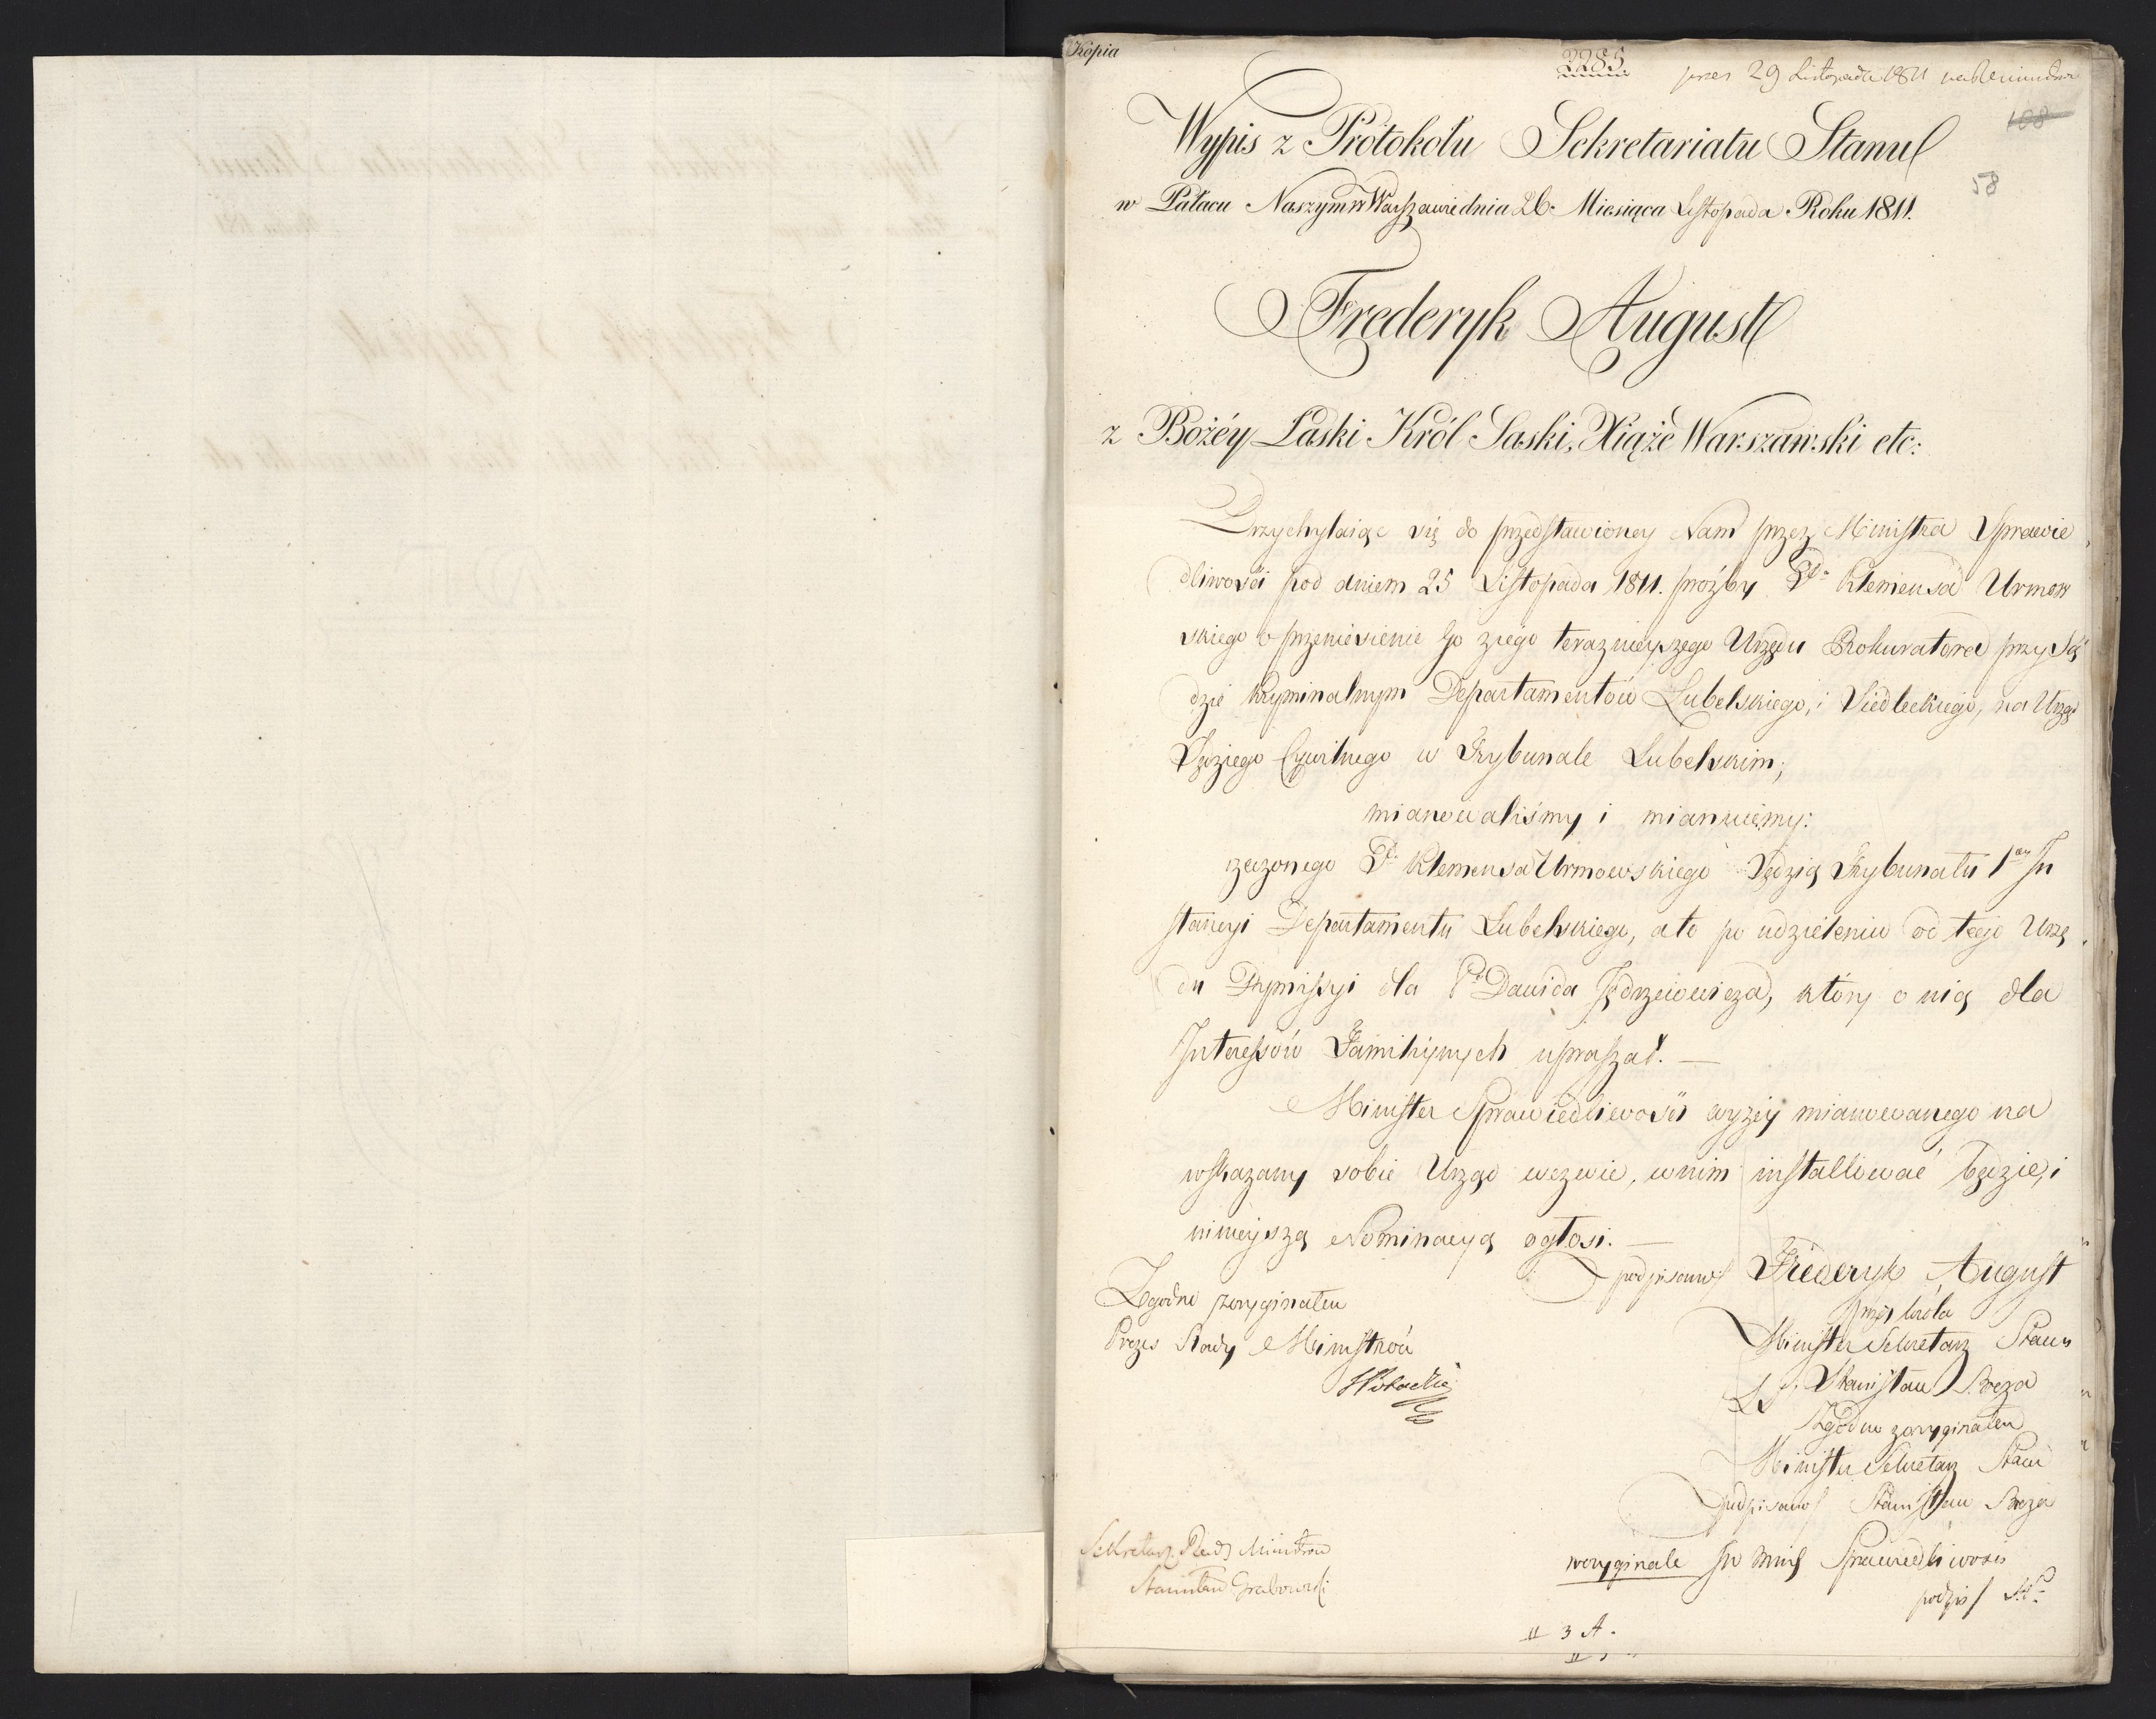 Kopia
2285.
prez 29 Listopada 1811
108
Wypis z Protokołu Sekretariatu Stanu
58
w Pałacu Naszym w Warszawie dnia 26. Miesiąca Listopada Roku 1811.
Frederyk August
z Bożéy Łaski Król Saski, Xiąże Warszawski etc:
Przychylaiąc się do przedstawioney Nam przez Ministra Sprawie
dliwości pod dniem 25 Listopada 1811. proźby Pa. Klemensa Urmow
skiego o przeniesienie Go z iego teraznieyszego Urzędu Prokuratora przy Są
dzie Kryminalnym Departamentów Lubelskiego, i Siedleckiego, na Urząd
Sędziego Cywilnego w Trybunale Lubelskim;
mianowaliśmy i mianuiemy:
rzeczonego Pa. Klemensa Urmowskiego Sędzią Trybunału 1ey In
stancyi Departamentu Lubelskiego, a to po udzieleniu od tego Urzę
du Dymissyi dla Pa Dawida Jędrzeiewicza, który o nią dla
Interessów Familiynych upraszał. —
Minister Sprawiedliwości wyżéy mianowanego na
wskazany sobie Urząd wezwie, w nim installować będzie, i
ninieyszą Nominacyą ogłosi. —
podpisano/ Frederyk August
Zgodno z oryginałem
przez Króla
Prezes Rady Ministrów
Minister Sekretarz Stanu
S Potocki
L. S. Stanisław Breza
Zgodno z oryginałem
Minister Sekretarz Stanu
podpisano/ Stanisław Breza
Sekretarz Rady Ministrów
Stanisław Grabowski
w oryginale Sprawiedliwości
podpis/
3 A.